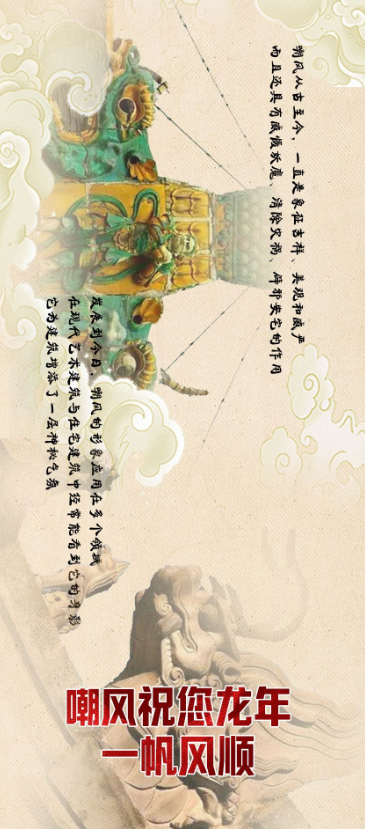 嘲风从古至今，一直是象征吉祥、美观和威严
而且还具有威慑妖魔、清除灾祸、辟邪安宅的作用
发展到今日，嘲风的形象应用在多个领域
在现代艺术建筑与住宅建筑中经常能看到它的身影
它为建筑增添了一层神秘气氛
嘲风祝您龙年
一帆风顺